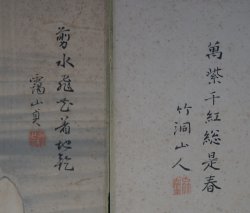 萬紫千紅総是春
竹洞山人
剪水飛花着地乾
靄山貞